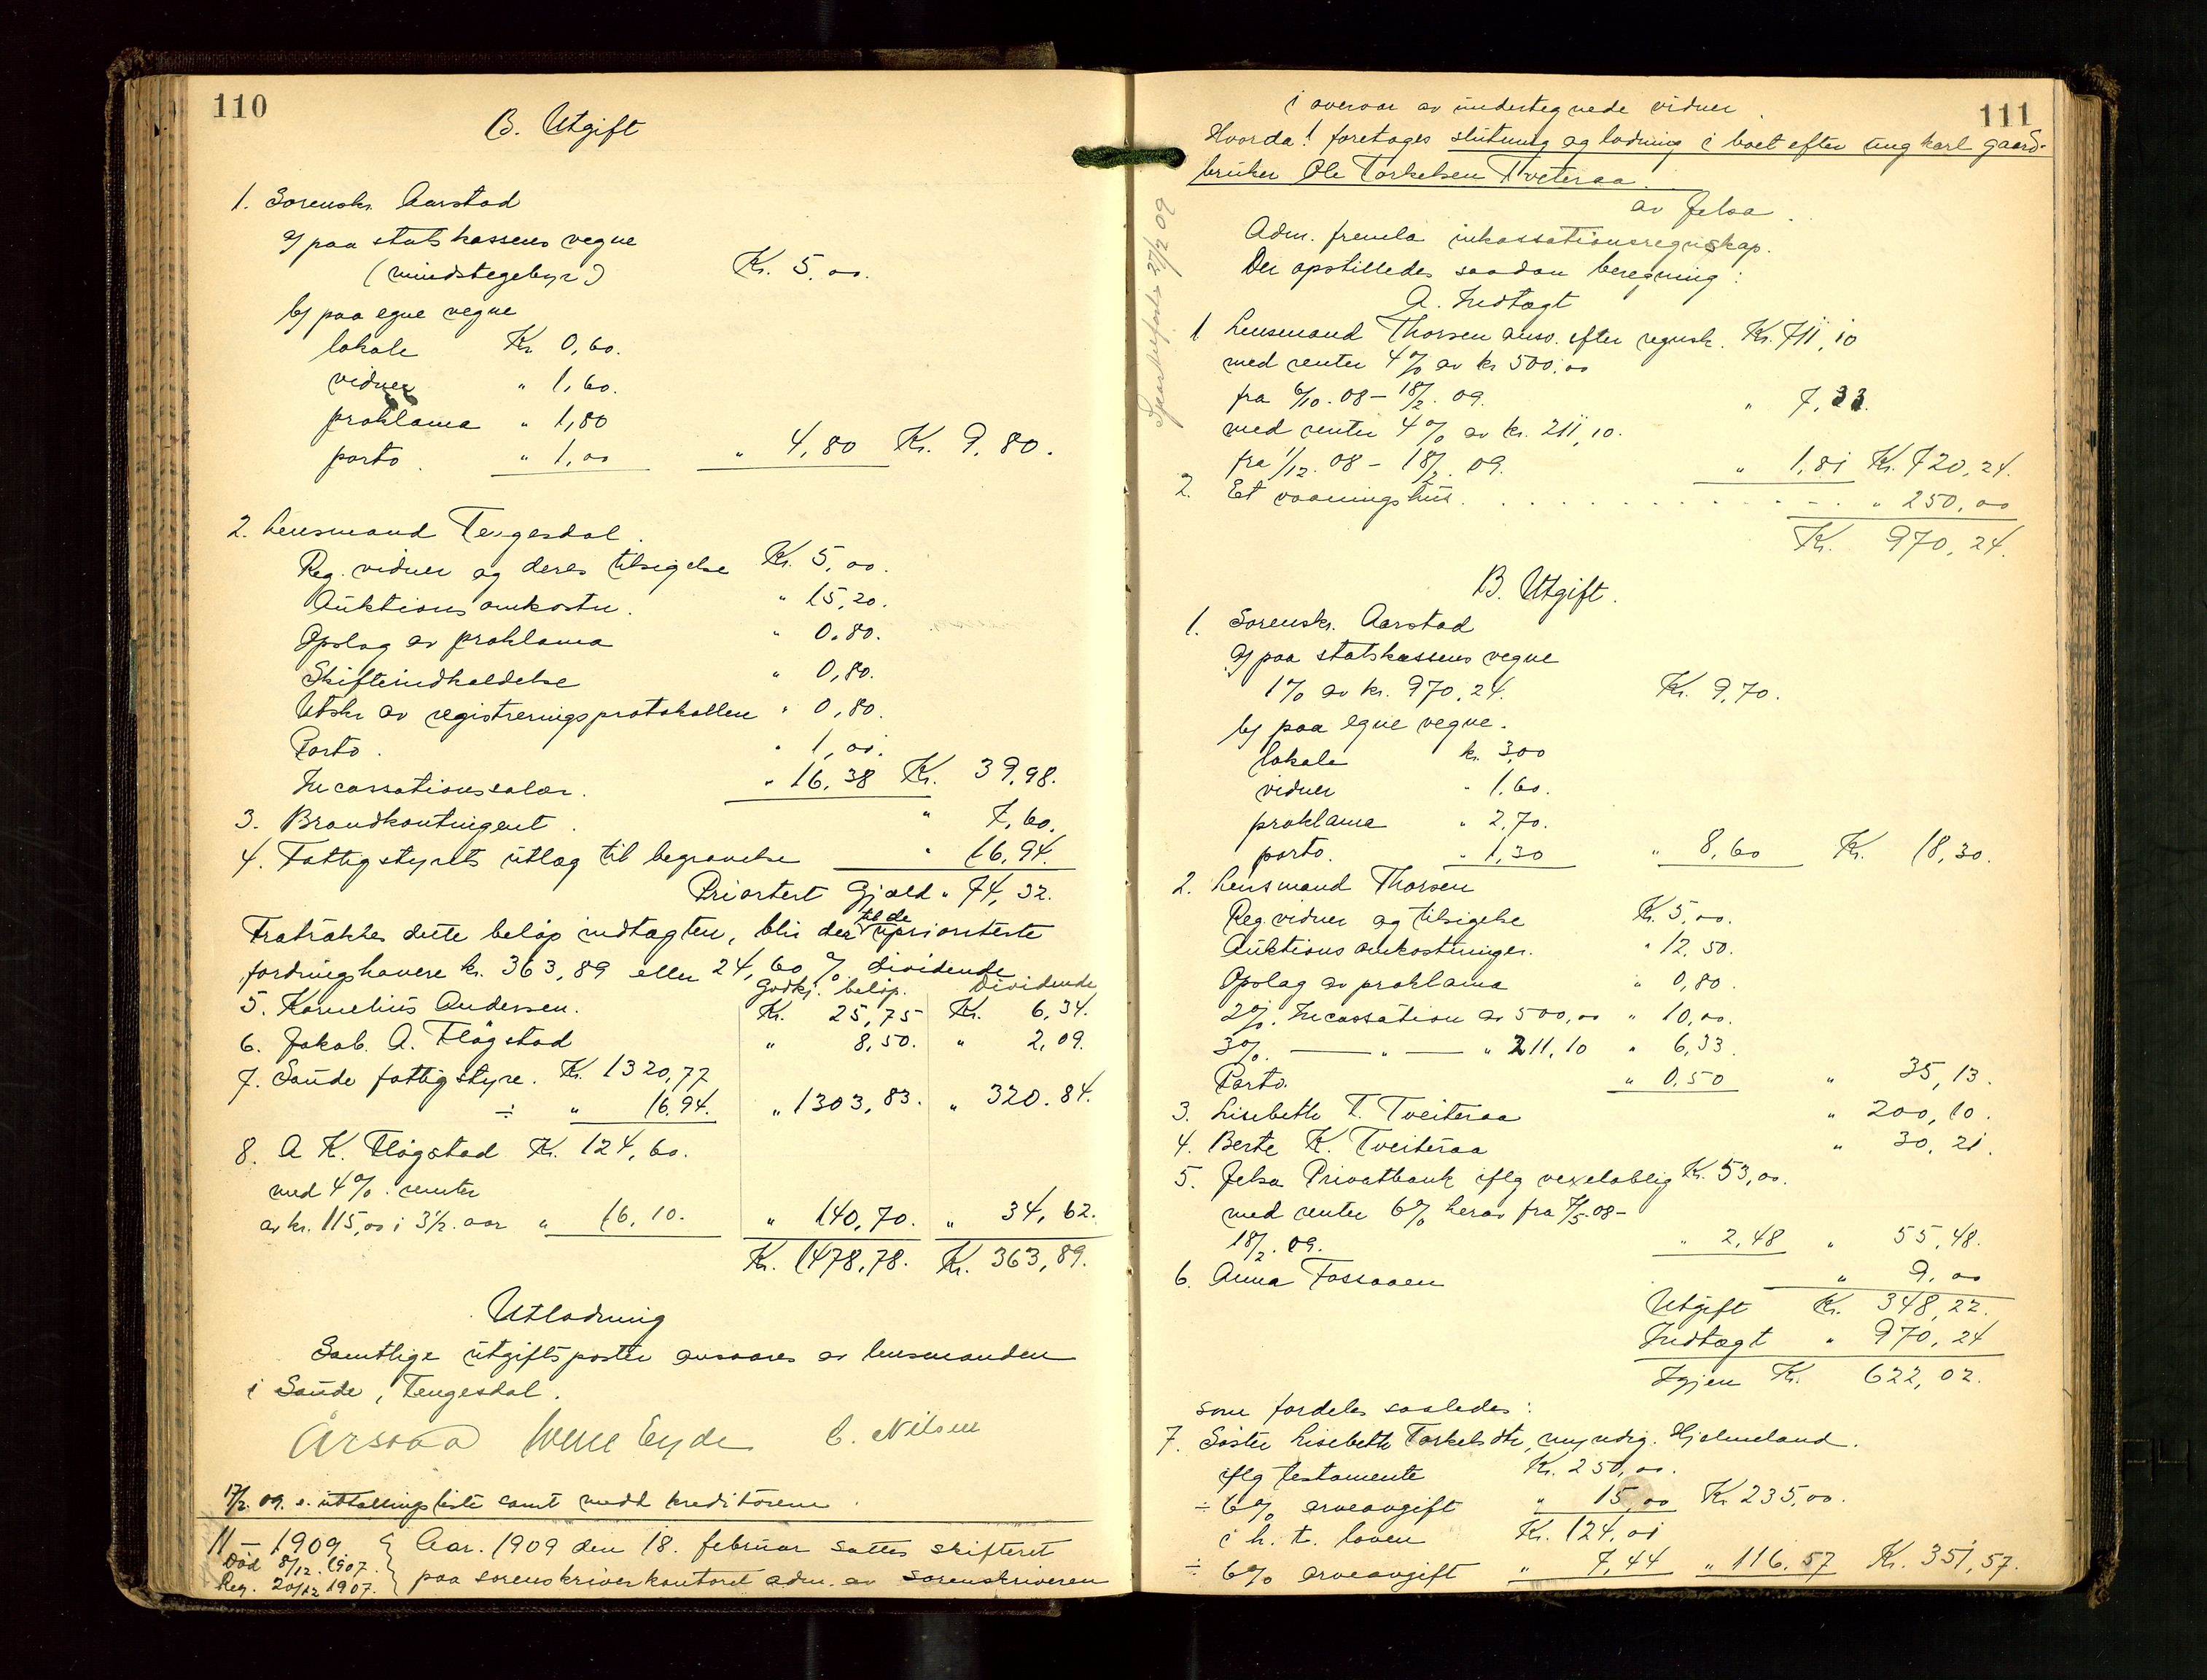 110
B. Utgift
1. Sorenskr. Aarstad
a) paa statskassens vegne
(mindstegebyr) Kr. 5,00.
b) paa egne vegne
lokale Kr 0,60.
vidner " 1,60.
proklama " 1,80
porto. " 1,00 " 4,80 Kr. 9,80.
2. Lensmand Tengesdal.
Reg. vidner og deres tilsigelse Kr. 5,00.
Auktionsomkostn. " 15,20.
Opslag av proklama " 0,80.
Skifteindkaldelse " 0,80.
Utskr av registreringsprotokollen " 0,80.
Porto. " 1,00.
Incassationssalær. " 16,38 Kr. 39,98.
3. Brandkontingent. " 7,60.
4. Fattigstyrets utlæg til begravelse " 16,94.
Priortert Gjæld " 74,32.
Fratrækkes dette beløp indtægten, blir der til de uprioriterte
fordringshavere kr. 363,89 eller 24,60 % dividende
Godkj. beløp. Dividende
5. Kornelius Andersen. Kr. 25,75 Kr. 6,34.
6. Jakob A. Fløgstad " 8,50. " 2,09.
7. Saude fattigstyre. Kr. 1320,77
÷ " 16,94. " 1303,83. " 320.84.
8. A K. Fløgstad Kr. 124,60.
med 4%. renter
av kr. 115,00 i 3½ aar " 16,10. " 140,70. " 34,62.
Kr. 1478,78. Kr. 363,89.
Utlodning
Samtlige utgiftsposter ansvares av lensmanden
i Saude, Tengesdal.
Eyde C. Nilsen
17/2 09. s. uttællingsliste samt medt kreditorene.
11 – 1909 { Aar. 1909 den 18. februar sattes skifteret
Død 8/12. 1907.
Reg. 20/12 1907. paa sorenskriverkontoret adm. av sorenskriveren
111
i overvær av undertegnede vidner
Hvorda! foretages slutning og lodning i boet efter ungkarl gaard-
bruker Ole Torkelsen Tveteraa.
av Jelsa.
27/2 09
Adm. fremla inkassationsregnskap.
Der opstilledes saadan beregning:
A. Indtægt
1 Lensmand Thorsen ansv. efter regnsk. Kr. 711,10
med renter 4% av kr 500,00
fra 6/10. 08 – 18/2. 09. " 7,33.
med renter 4% av kr. 211,10.
fra 1/12. 08 – 18/2. 09. " 1,81 Kr. 720,24.
2. Et vaaningshus. . . . . . . . . . " 250,00
Kr. 970,24.
B. Utgift.
1. Sorenskr. Aarstad
a) paa statskassens vegne
1% av kr. 970,24. Kr. 9,70.
b) paa egne vegne.
lokale kr. 3,00
vidner " 1.60.
proklama " 2,70.
porto. " 1,30 " 8,60 Kr. 18,30.
2. Lensmand Thorsen
Reg. vidner og tilsigelse Kr. 5,00.
Auktionsomkostninger. " 12,50.
Opslag av proklama " 0,80.
2%. Incassation av 500,00 " 10,00.
3%. — " — " 211,10 " 6,33.
Porto. " 0,50 " 35,13.
3. Lisebeth T. Tveiteraa " 200,10.
4. Berte K. Tveiteraa " 30,21.
5. Jelsa Privatbank iflg vexeloblig Kr. 53,00.
med renter 6% herav fra 7/5. 08 –
18/2. 09. " 2,48 " 55,48.
6. Anna Fossaaen " 9,00
Utgift Kr. 348,22.
Indtægt " 970,24
Igjen Kr. 622,02.
som fordeles saaledes:
7. Søster Lisebeth Torkelsdtr, myndig. Hjelmeland.
iflg testamente Kr. 250,00.
÷ 6% arveavgift " 15,00 Kr 235,00.
i h. t. loven Kr. 124,01
÷ 6% arveavgift " 7,44 " 116,57 Kr. 351,57.